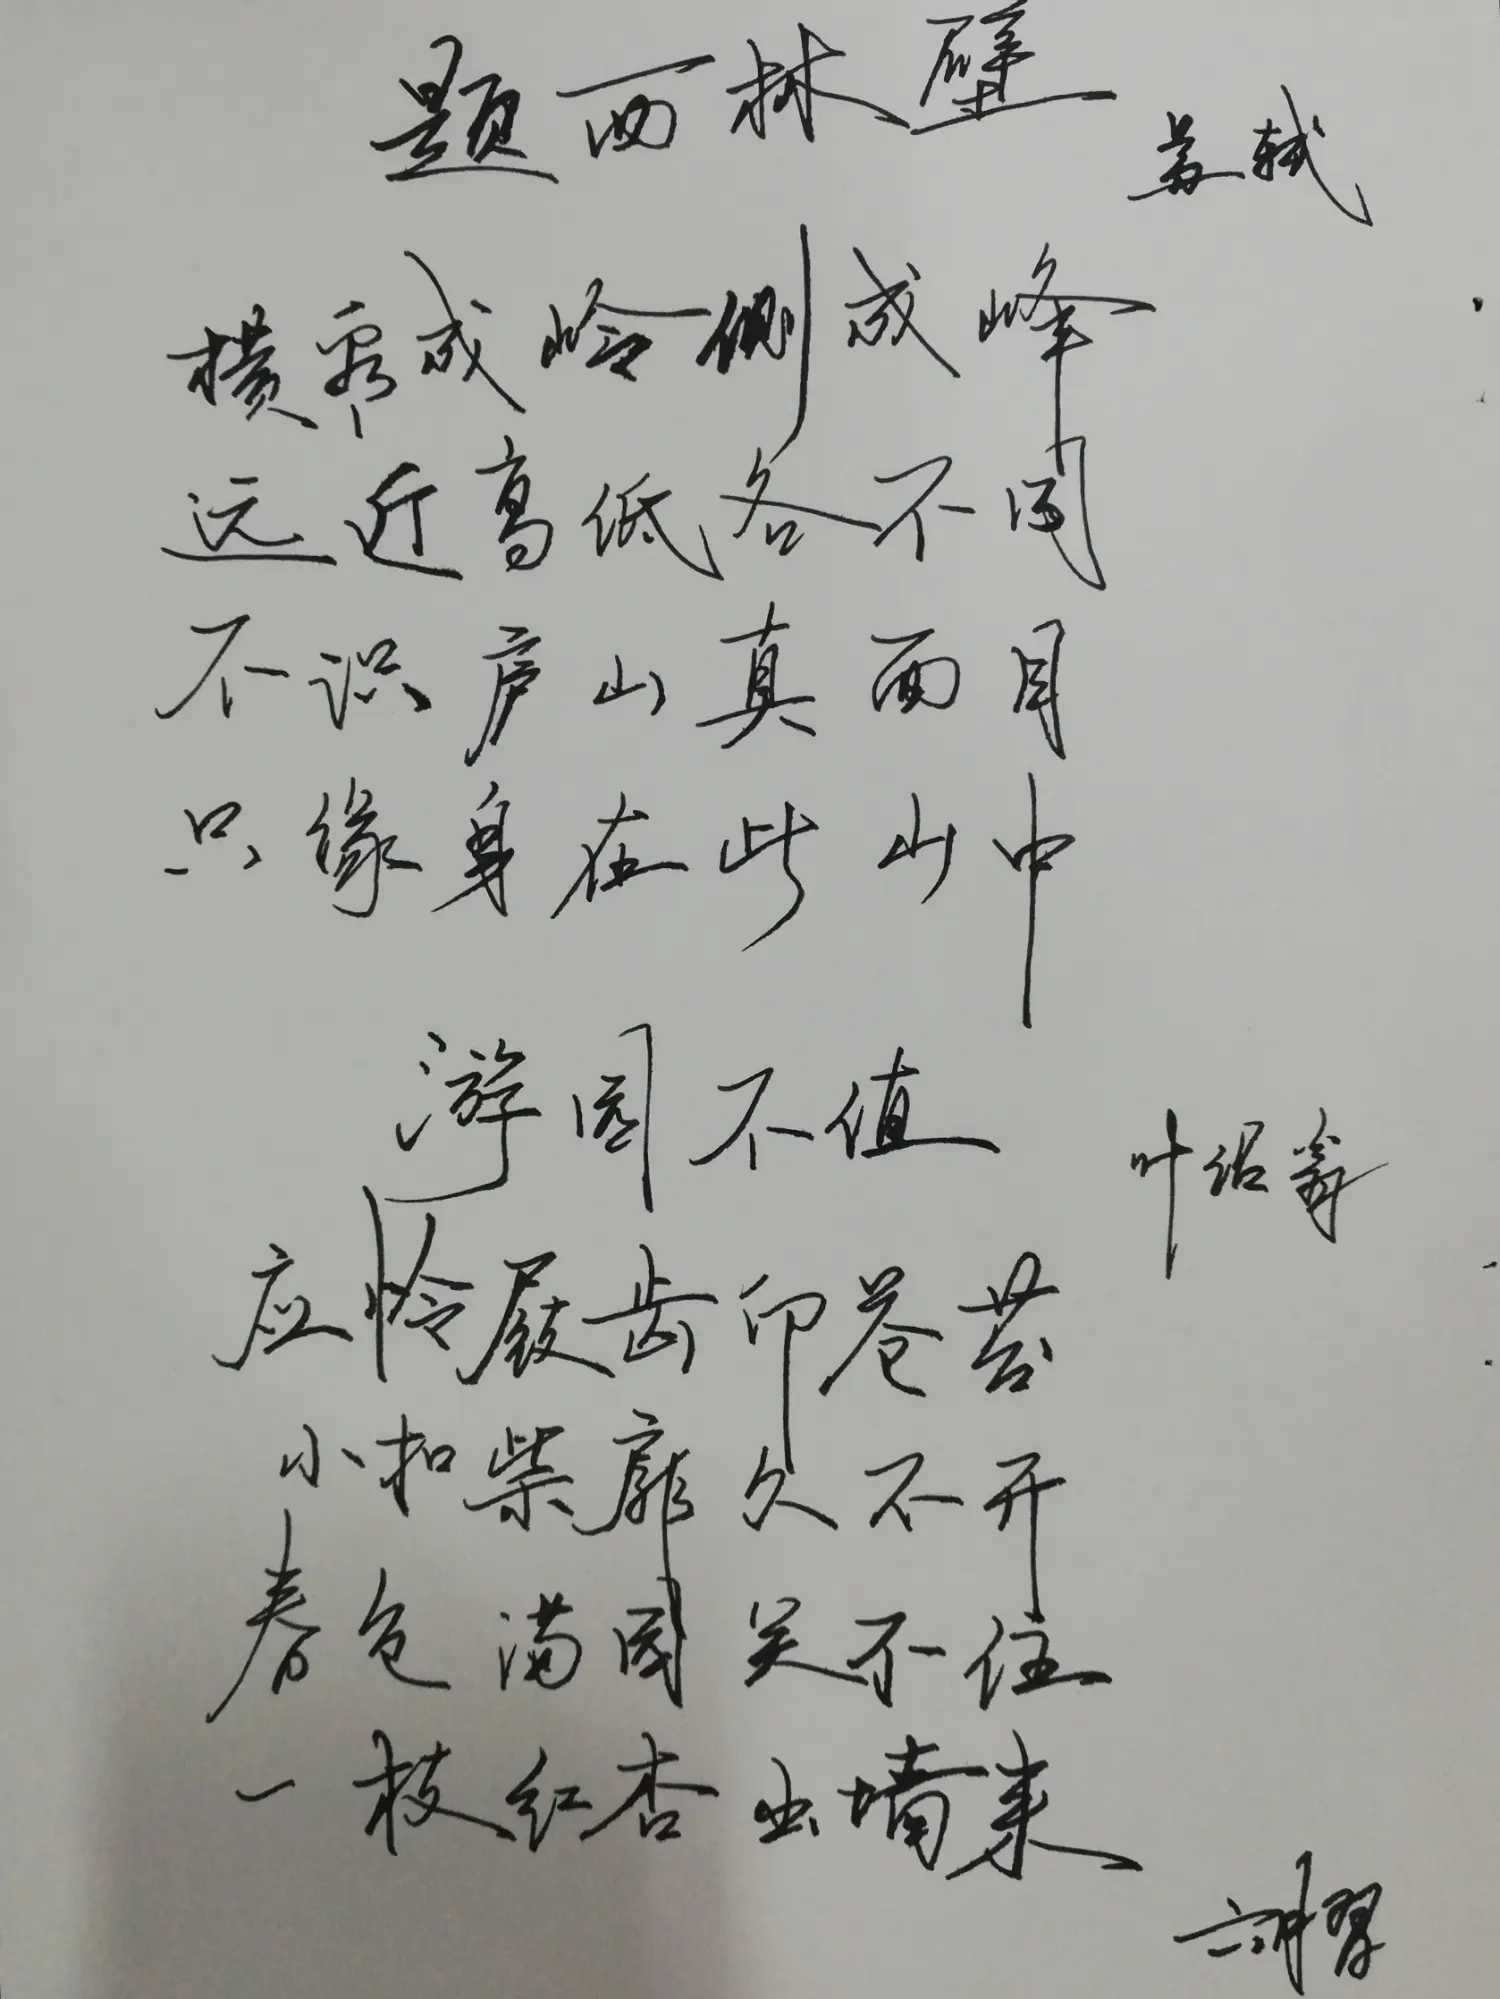 题西林壁
苏轼
横看成岭侧成峰
远近高低各不同
不识庐山真面目
只缘身在此山中
游园不值
叶绍翁
应怜屐齿印苍苔
小扣柴扉久不开
春色满园关不住
一枝红杏出墙来